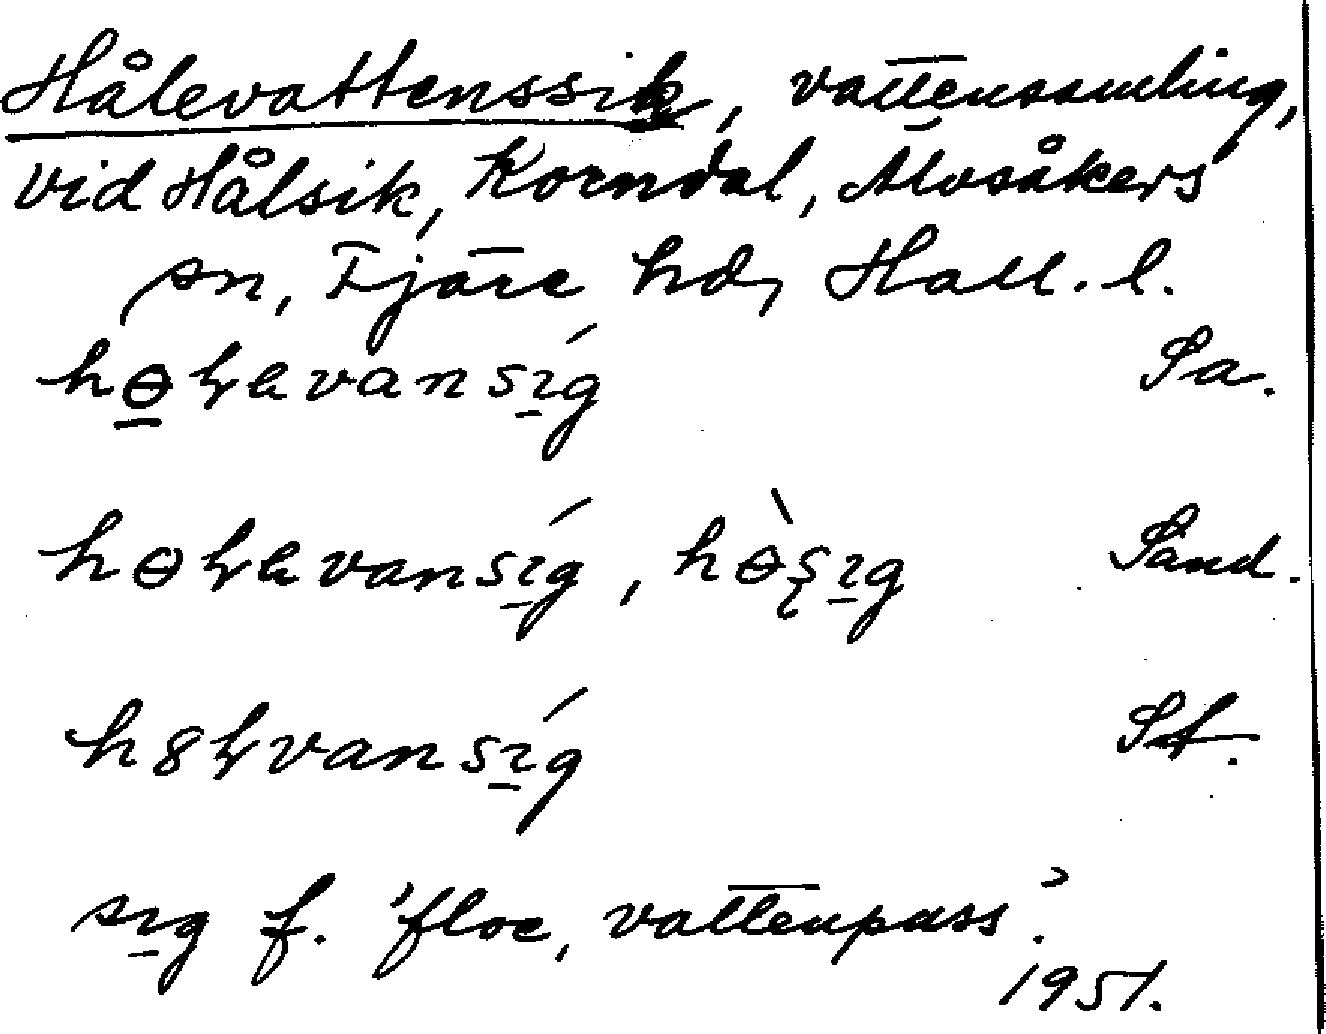 Hålevattenssik, vattensamling,
vid Hålsik, Korndal, Älvsåkers
sn, Fjäre hd, Hall. l.
hɵɫavansíg Sa.
hɵɫavansíg, hɵ̀ʂıg Sand.
h8ɫvansíg St.
sıg f. 'floe, vattenpuss'.
1951.